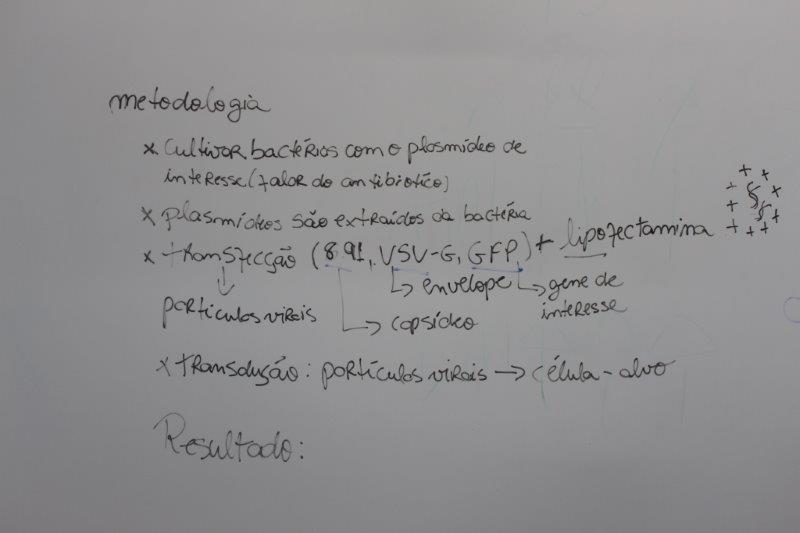 metodologia
x cultivar bactérias com o plasmídeo de
interesse (falar do antibiótico)
x plasmídeos são extraídos da bactéria
x transfecção (8.91, VSV-G, GFP) + lipofectamina
↳ envelope ↳ gene de
partículas virais interesse
↳ capsídeo
x transdução: partículas virais → célula-alvo
Resultado: